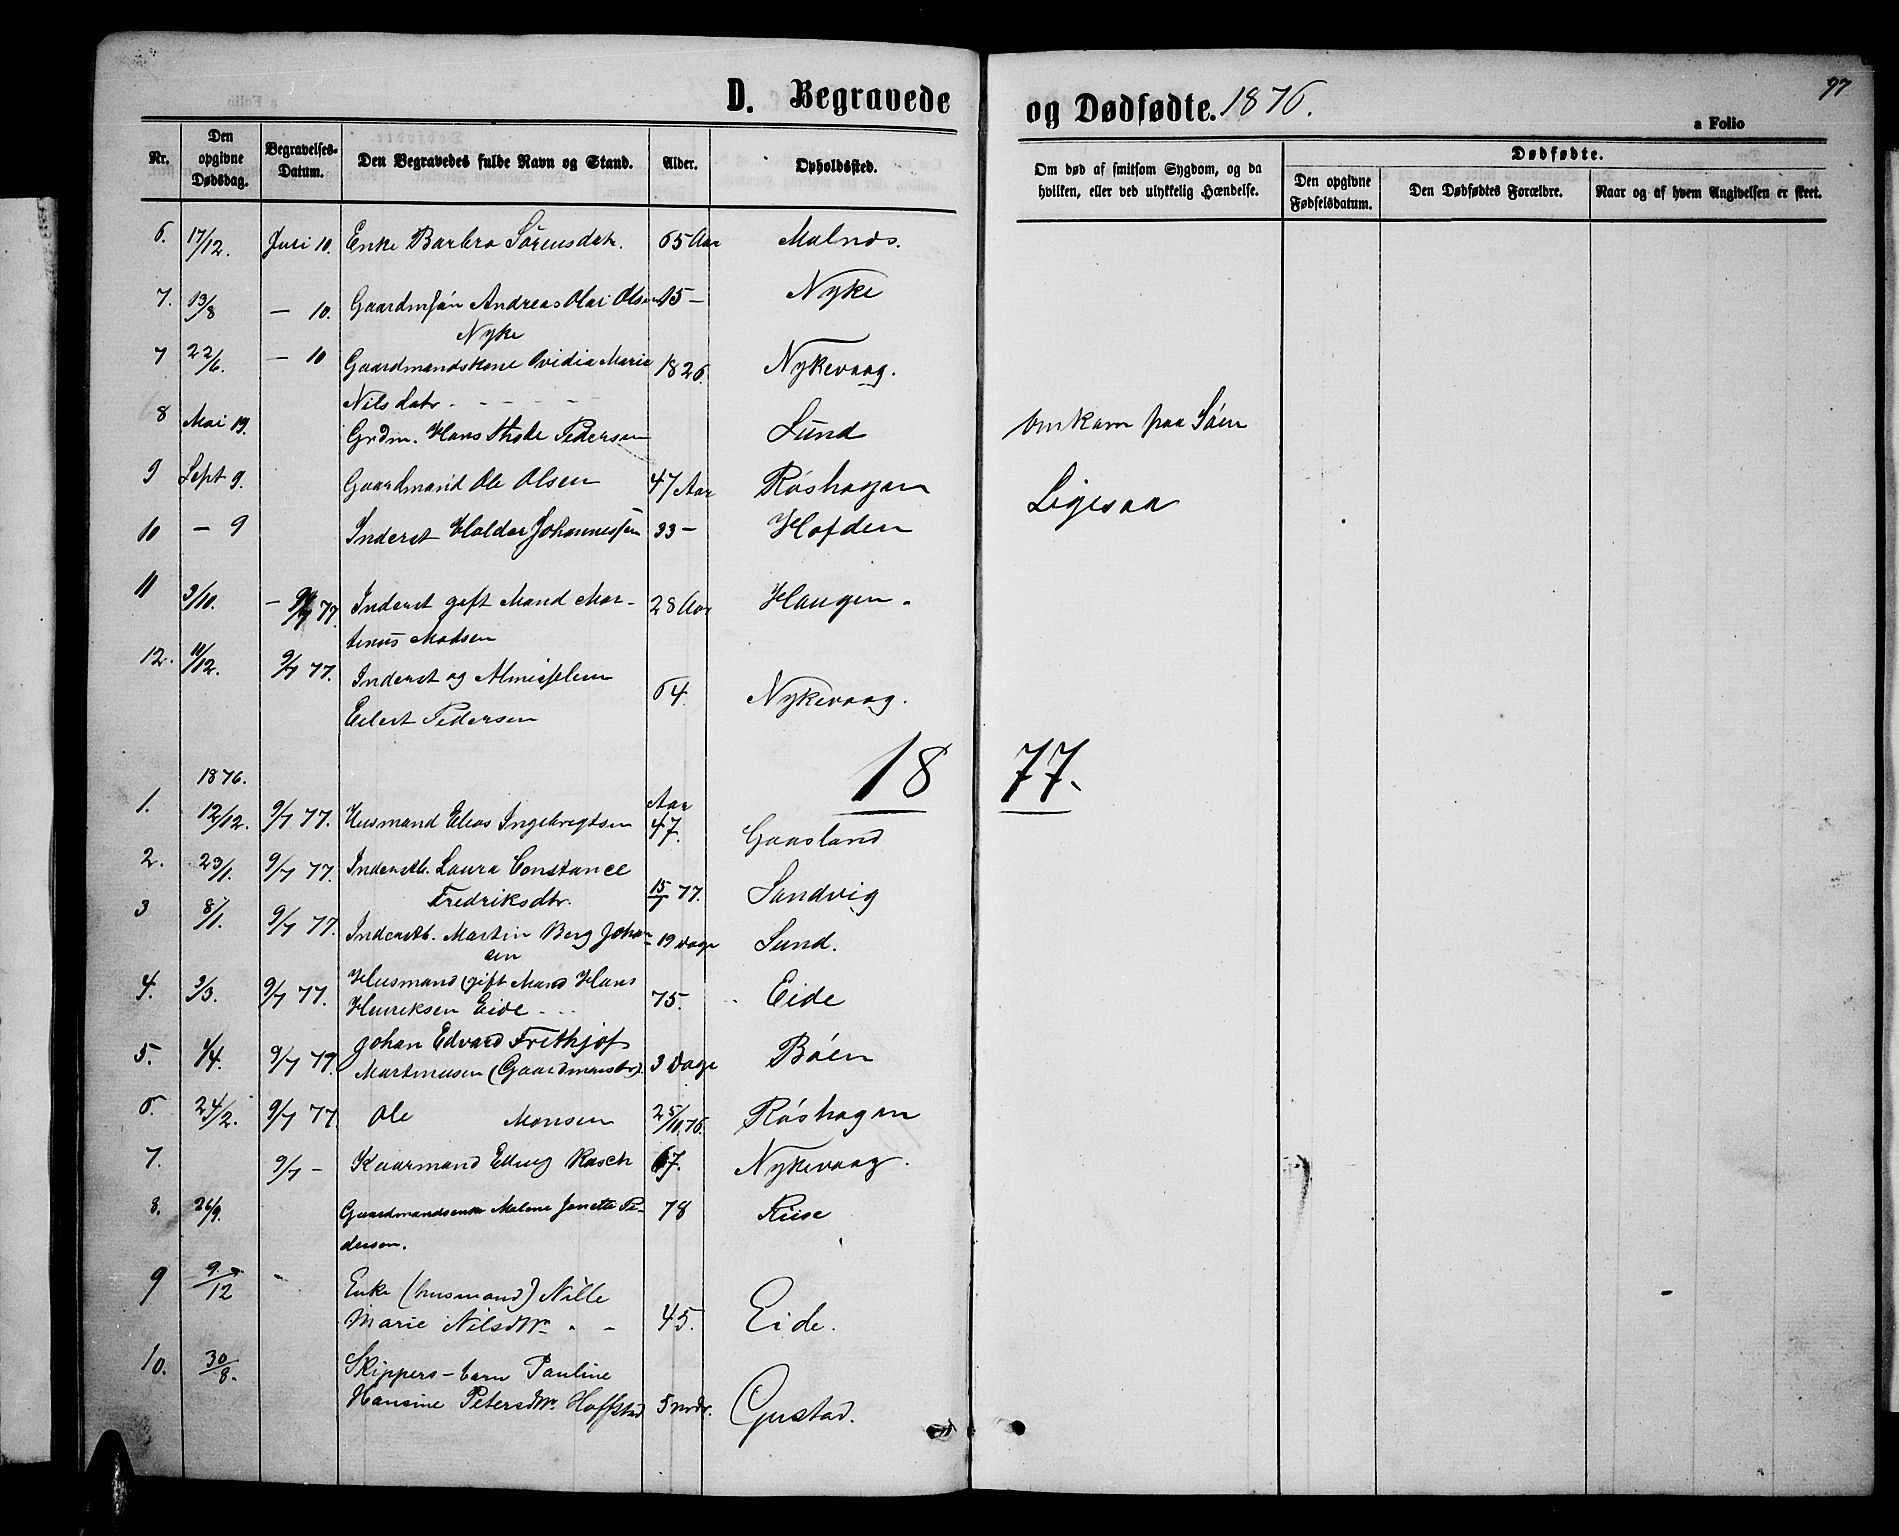 a Folio
D. Begravede og Dødfødte. 1876.
97
a Folio
Nr.
Den opgivne Dødsdag.
Begravelses-Datum.
Den Begravedes fulde Navn og Stand.
Alder.
Opholdssted.
Om død af smitsom Sygdom, og da hvilken, eller ved ulykkelig Hændelse.
Dødfødte.
Den opgivne Fødselsdatum.
Den Dødfødtes Forældre.
Naar og af hvem Angivelsen er skeet.
6. 17/12. Juni 10. Enke Barbra Sørensdatr. 65 Aar Malnæs.
7. 13/8 — 10. Gaardm søn Andreas Olai Olsen 15 — Nyke
Nyke
7 22/6. — 10 Gaardmandskone Ovidia Maria 1826. Nykevaag.
Nilsdatr. - - - - -
8 Mai 19. Grdm. Hans Pedersen Lund Omkom paa Søen
9 Sept 9. Gaardmand Ole Olsen 47 Aar Röshagen Ligesaa
10 — 9 Inderst Haldor Johannessen 33 — Hofden
11 3/10. — 9/7 77. Inderst gift Mand Mar- 28 Aar Haugen.
tinus Madsen
12. 11/12. 9/7 77. Inderst og Almisselem
Eilert Pedersen 64. Nykevaag.
1877.
1876.
1. 12/12. 9/7 77. Husmand Elias Ingebrigtsen Aar 47. Gaasland
2. 23/1. 9/7 77. Inderstb. Laura Constance
Fredriksdtr. 15/1 77. Sandvig
3 8/1. 9/7 77. Inderstb. Martin Berg Johan- 19 Dage Sund.
sen
4. 3/3. 9/7 77. Husmand (gift Mand Hans
Henriksen Eide - - - 75. Eide
5. 1/4. 9/7 77. Johan Edvard Frithjof
Martinusen (Gaardmansbr). 3 Dage Böen
6. 24/2. 9/7 77. Ole Monsen 25/10.76. Röshagen
7. 9/7 — Kaarmand Elling Rasch 67. Nykevaag.
8. 26/9. Gaardmandsenke Malene Jonetta Pe- 78 Riise
dersen.
9 9./12 - Enke (husmand) Nille
Marie Nilsdtr - - 45. Eide.
10. 30/8. Skippers-barn Pauline
Hansine Petersdtr. Hoffstad 5 mdr. Gustad.